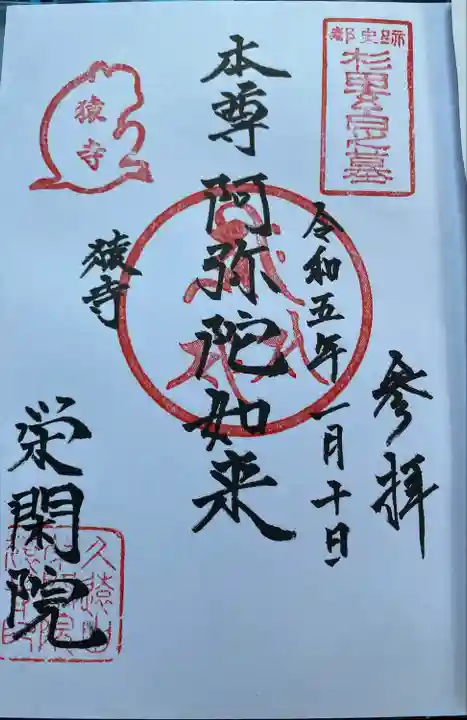 参拝
都史跡
杉田玄白之墓
令和五年一月十日
本尊 阿弥陀如来
猿寺
猿寺
栄閑院
久猿山